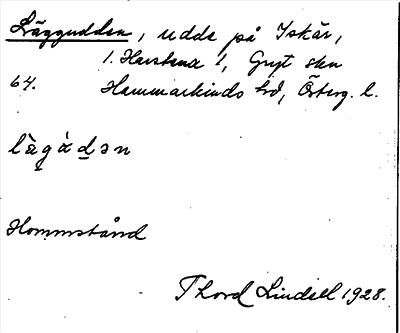 Läggudden, udde på Iskär,
1. Harstena 1, Gryt skn
64. Hammarkinds hd, Österg. l.
làgádən
Thord Lindell 1928.